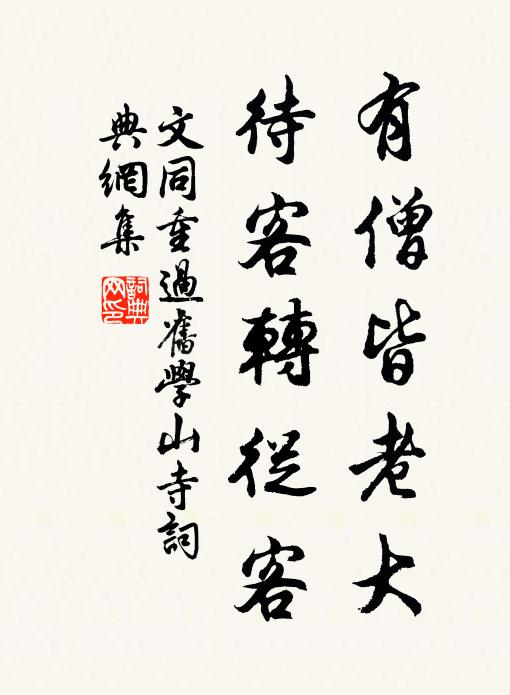 有僧皆老大
待客轉從客
文同重過舊學山寺詞
典網集
詞典
网印